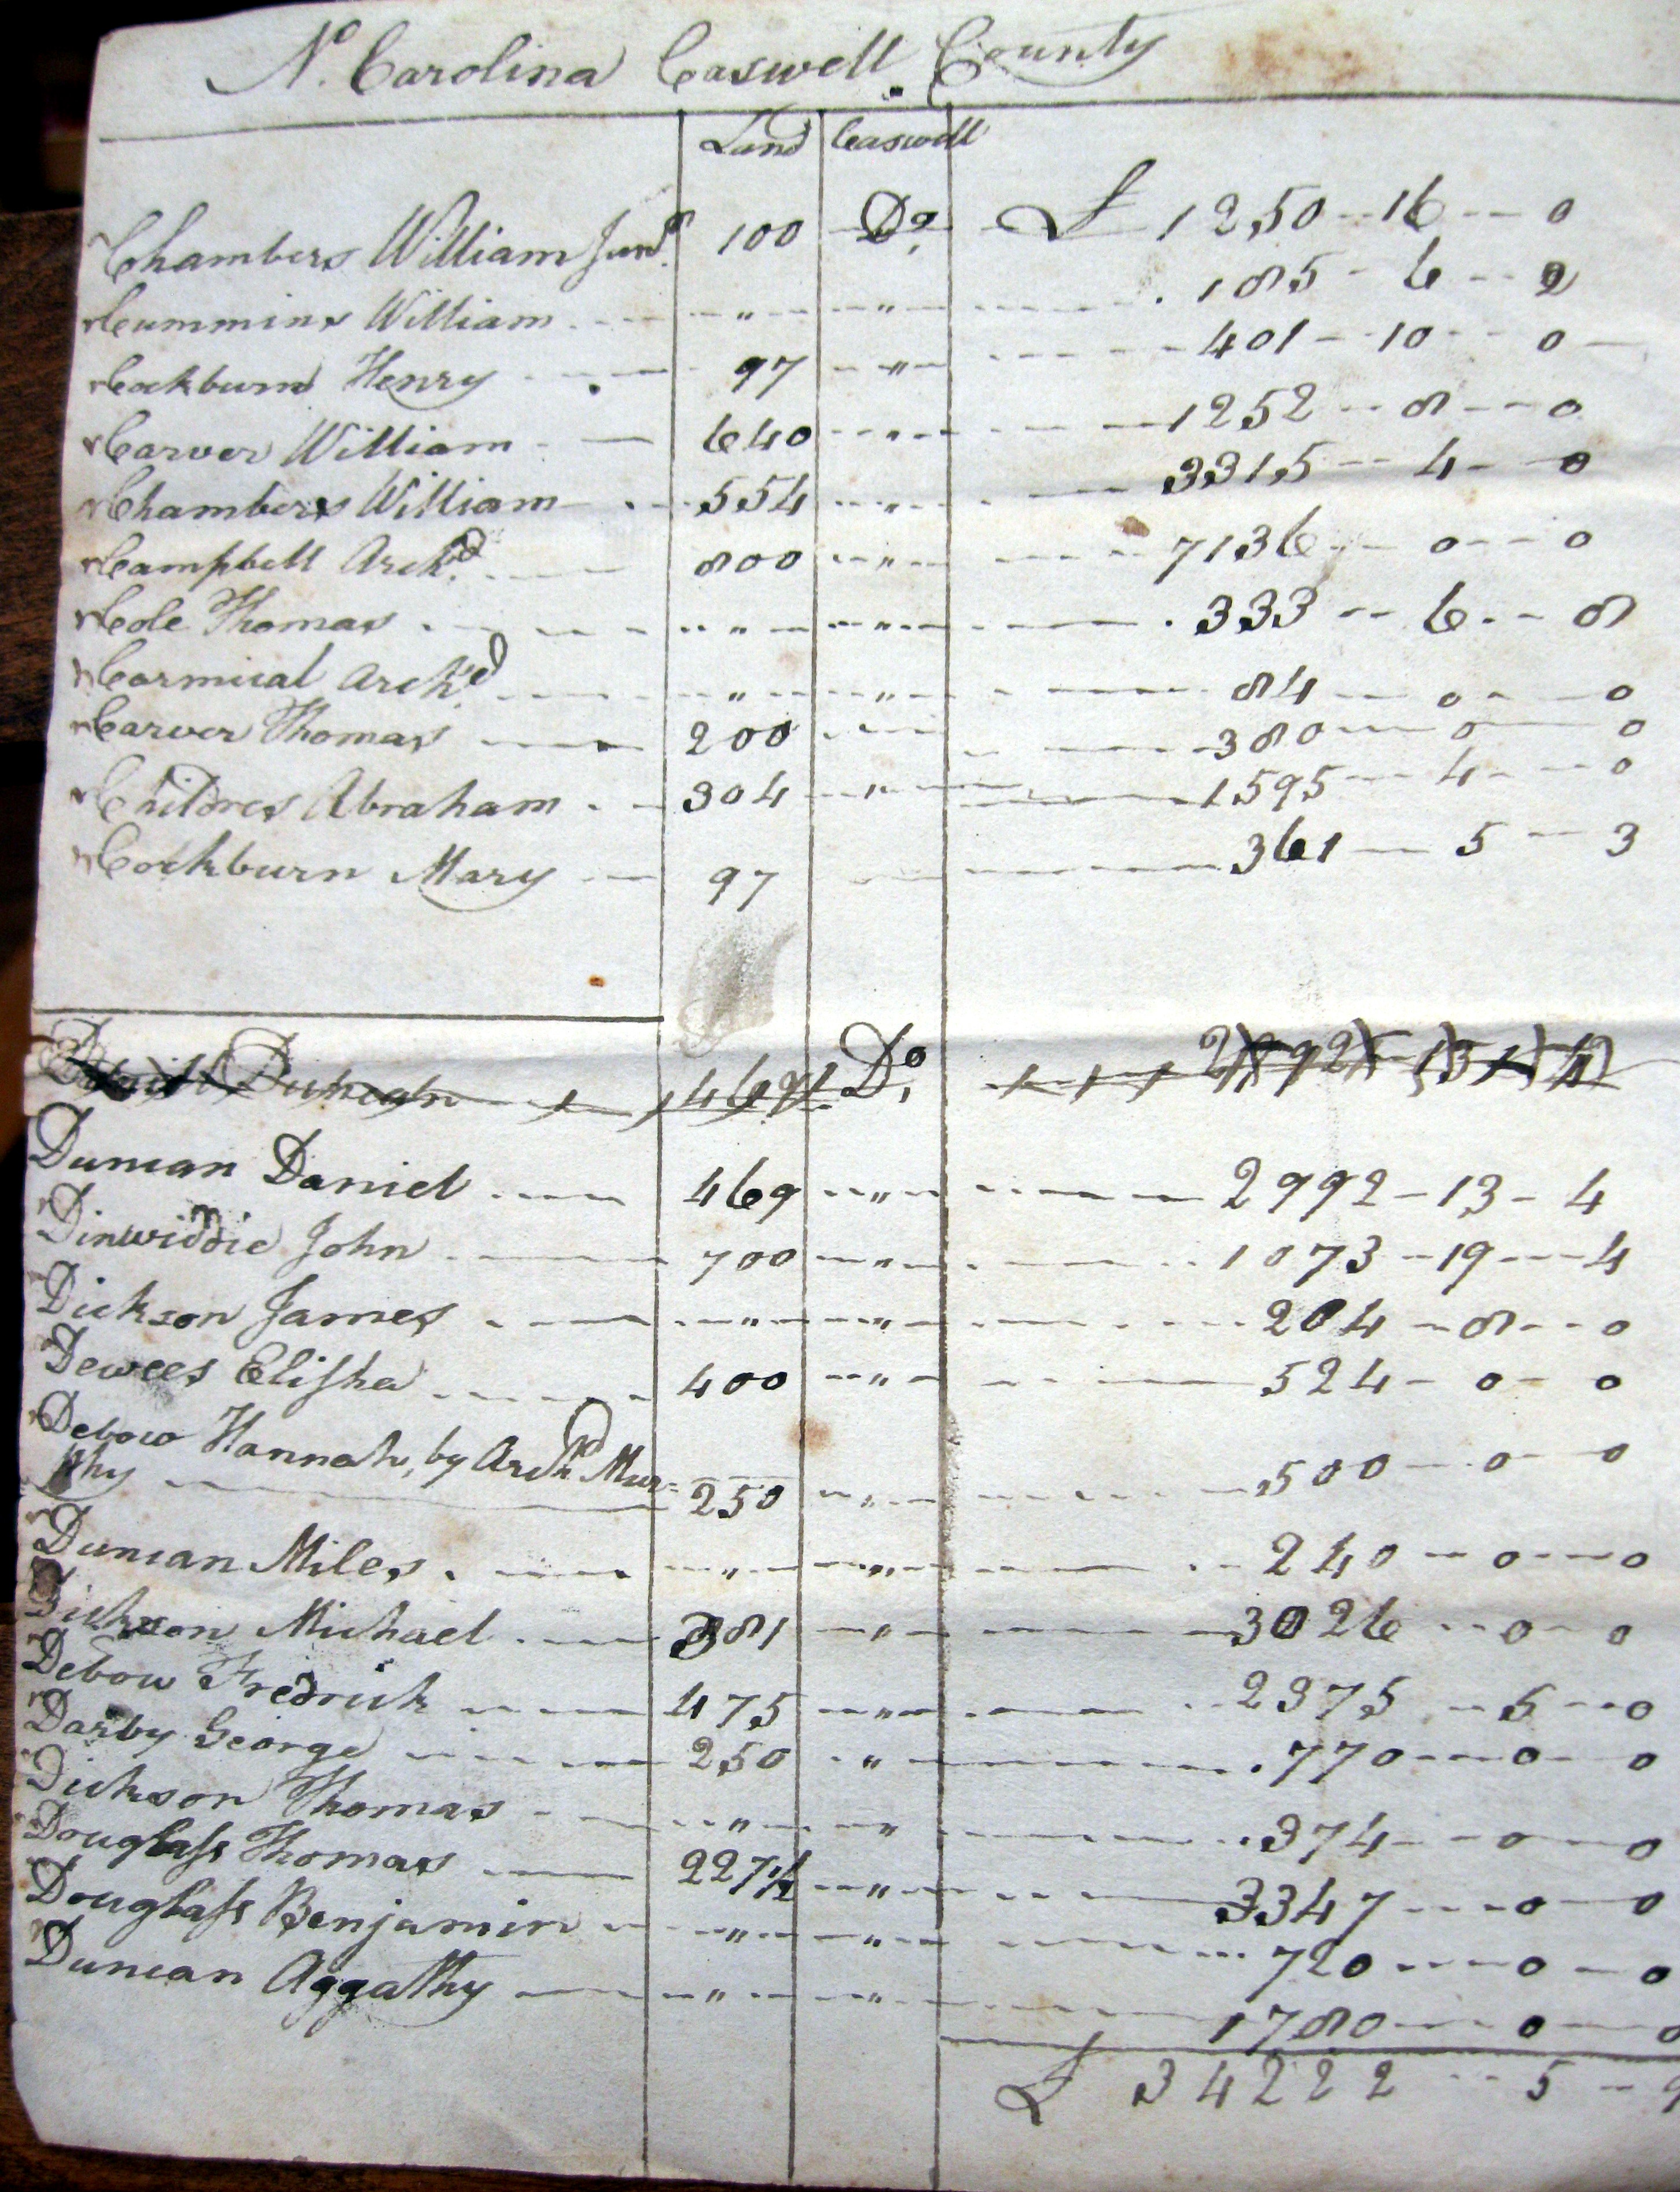 No. Carolina Caswell County
Land Caswell
Chambers William Junr. 100 Do. £ 1250--16--0
Cummins William " " 185-6--2
Cockburn Henry 97 " 401--10--0
Carver William 640 " 1252--8--0
Chambers William 554 " 3315--4--0
Campbell Archd. 800 " 7136--0--0
Cole Thomas " " 333--6--8
Carmical Archd. " " 84--0--0
Carver Thomas 200 " 380--0--0
Childres Abraham 304 " 1595--4--0
Cockburn Mary 97 361--5--3
Duncan 469 Do. 2992 13 4
Duncan Daniel 469 " 2992-13-4
Dinwiddie John 700 " 1073-19--4
Dickson James " " 204-8--0
Dewees Elisha 400 " 524-0-0
Debow Hannah, by Archd Mur=
phy 250 " 500-0-0
Duncan Miles " " 240--0--0
Dickson Michael 381 " 3026--0-0
Debow Fredrick 475 " 2375--5--0
Darby George 250 " 770--0--0
Dickson Thomas " " 374--0--0
Douglass Thomas 227½ " 3347--0--0
Douglass Benjamin " " 720--0--0
Duncan Aggathy " " 1780--0--0
£ 34222--5--9